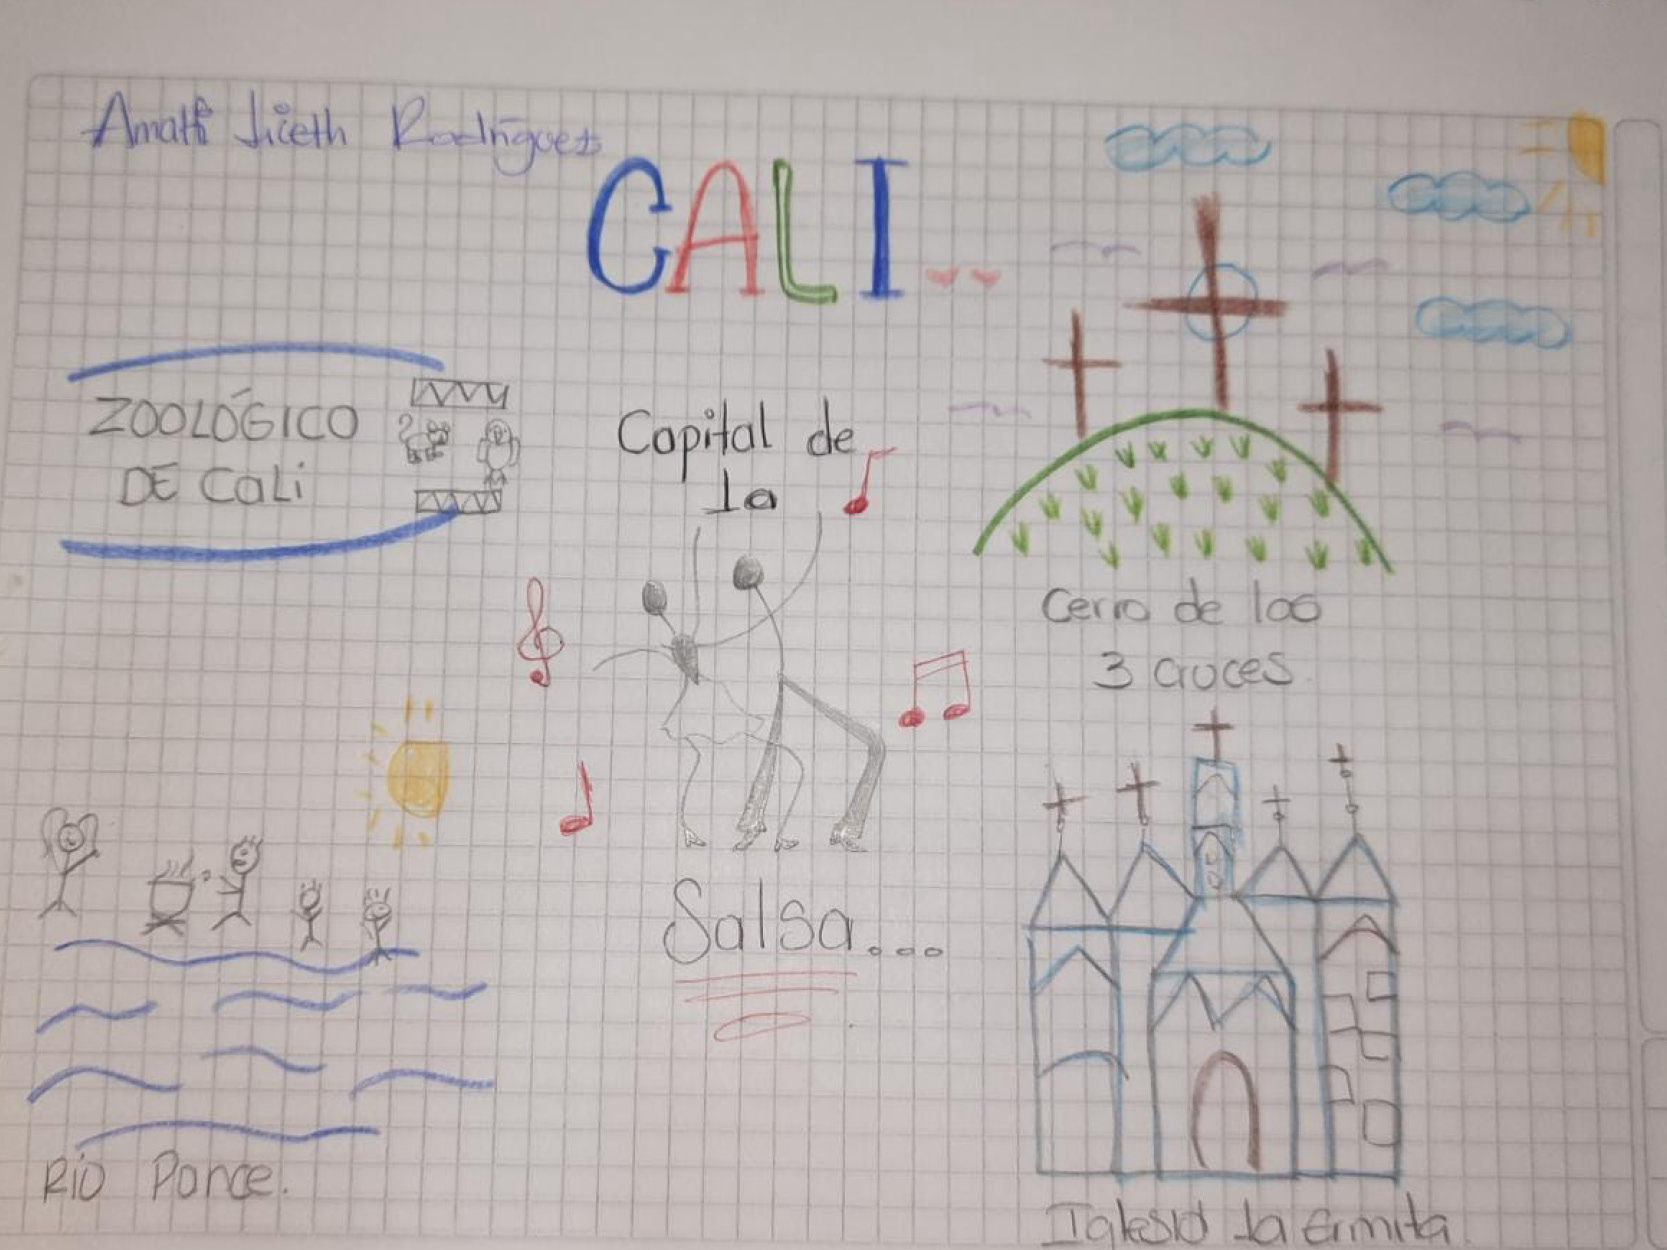 Amalfi Liceth Rodríguez
CALI..
ZOOLÓGICO
DE Cali
Capital de
la
Salsa...
Cerro de las
3 cruces.
RíO Pance.
Iglesia La Ermita.